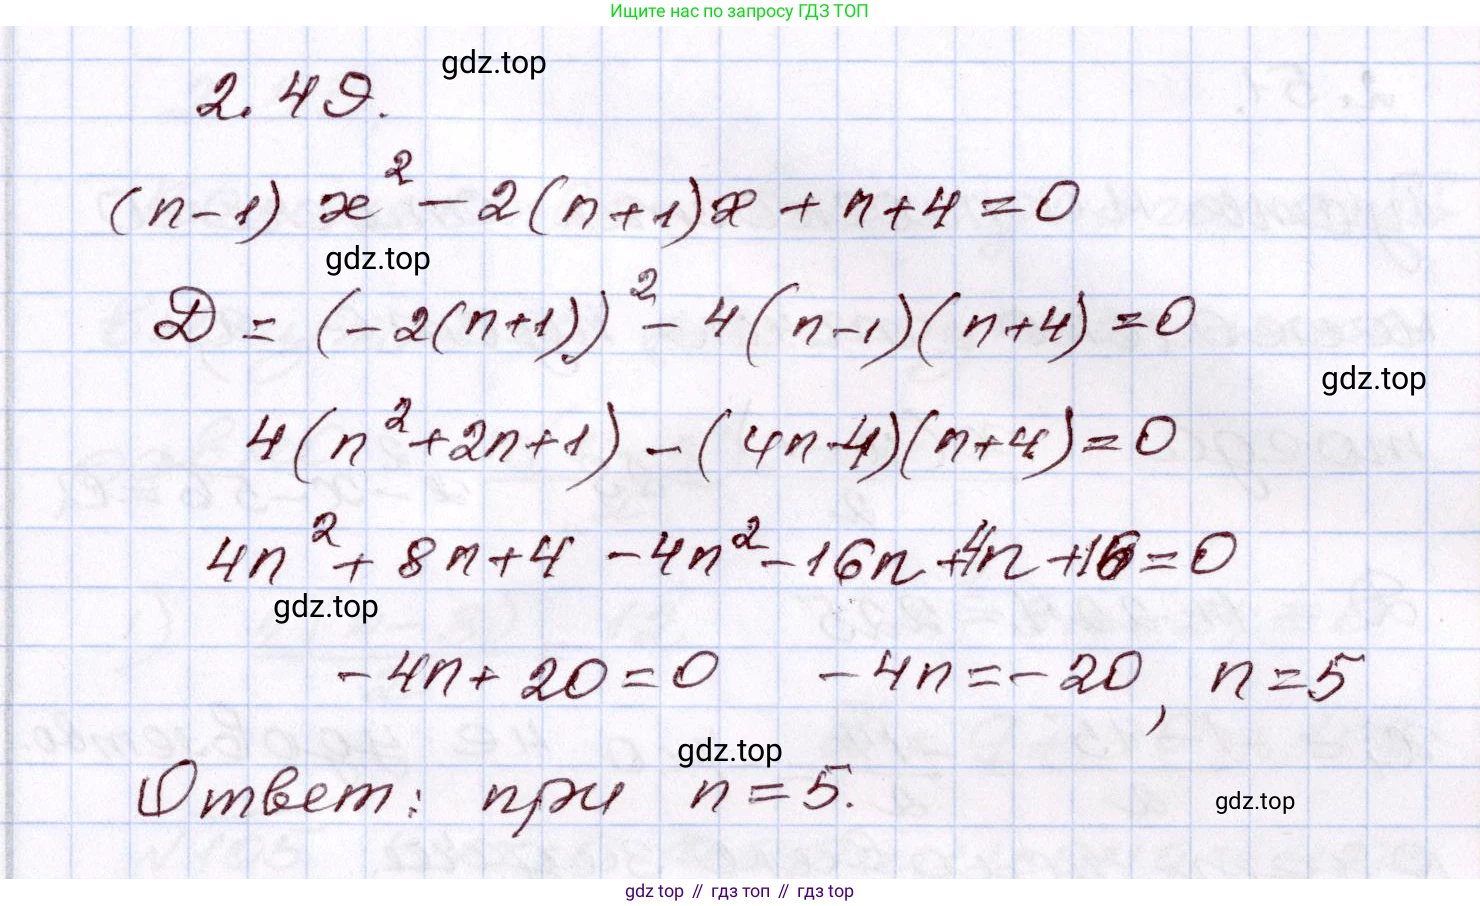 Ищите нас по запросу ГДЗ ТОП
gdz.top
2.49.
(n-1) x² - 2(n+1)x + n+4 = 0
gdz.top
D = (-2(n+1))² - 4(n-1)(n+4) = 0
gdz.top
4(n²+2n+1) - (4n-4)(n+4) = 0
4n² + 8n+4 - 4n² - 16n + 4n + 16 = 0
gdz.top
-4n + 20 = 0 -4n = -20, n = 5
gdz.top
Ответ: при n = 5.
gdz.top
gdz top // гдз топ // gdz top